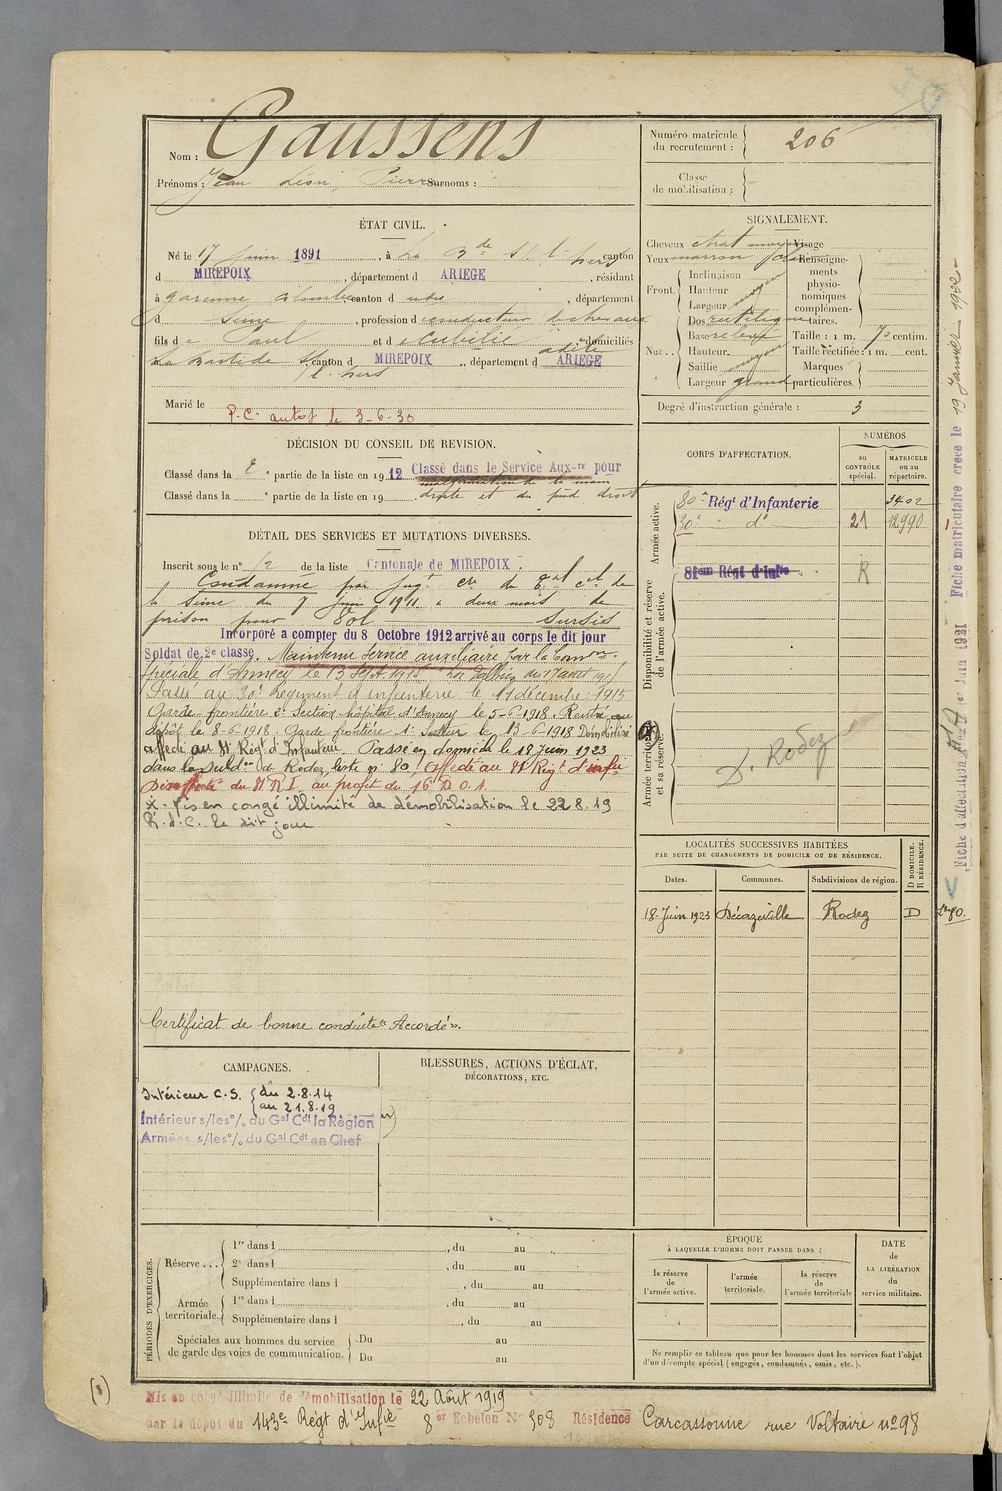 Nom : Gaussens
Prénoms : Jean Léon, Pierre Surnoms :
Numéro matricule du recrutement : 206
Classe de mobilisation :
ÉTAT CIVIL.
Né le 17 Juin 1891, à La B de S t l'hers canton
d MIREPOIX, département d ARIEGE, résidant
à Garenne Colombes canton d udu, département
d Seine, profession de conducteur de chevaux
fils de Paul et de domiciliés
à La Bastide St l'hers canton d MIREPOIX, département d ARIEGE
Marié le
P.C. autos le 3-6-30
SIGNALEMENT.
Cheveux chat moyen Visage
Yeux marron
Renseignements physionomiques complémentaires.
Front. Inclinaison
Hauteur moyen
Largeur
Nez.. Dos rectiligne
Base relevé Taille : 1 m. 70 centim.
Hauteur moyen Taille rectifiée : 1 m. cent.
Saillie Marques
Largeur grand particulières.
Degré d'instruction générale : 3
DÉCISION DU CONSEIL DE REVISION.
Classé dans la 2e partie de la liste en 1912 Classé dans le Service Aux-re pour
malformation de la main
Classé dans la e partie de la liste en 19 . droite et du pied droit
CORPS D'AFFECTATION.
NUMÉROS
AU CONTRÔLE spécial.
MATRICULE ou au répertoire.
Armée active.
80e Régt d'Infanterie 3402
30e do 21 12990
Disponibilité et réserve de l'armée active.
81em Régt d'Infie R
Armée territoriale et sa réserve.
D. Rodez
DÉTAIL DES SERVICES ET MUTATIONS DIVERSES.
Inscrit sous le n° 12 de la liste Cantonale de MIREPOIX.
Condamné par jugt du
la Seine du 7 juin 1911 à deux mois de
prison pour Vol sursis
Incorporé a compter du 8 Octobre 1912 arrivé au corps le dit jour
Soldat de 2e classe. Maintenu service auxiliaire par la Comon.
spéciale d'Annecy le 13 Sept. 1915 Loi Dalbiez du 17 août 1915
Passé au 30e Régiment d'infanterie le 11 décembre 1915
Garde frontière 2e Section hôpital d'Annecy le 5-6-1918. Rentré au
dépôt le 8-6-1918. Garde frontière 1e Secteur le 13-6-1918 Démobilisé
affecté au 81 Régt d'Infanterie Passé en domicile le 18 Juin 1923
dans la Subdon de Rodez, liste n° 80, affecté au 81 Régt d'infie
Désaffecté du 81 R.I. au profit du 16e D.O.A.
X - Mis en congé illimité de démobilisation le 22.8.19
R.d.C. le dit jour
Certificat de bonne conduite "Accordé".
LOCALITÉS SUCCESSIVES HABITÉES
PAR SUITE DE CHANGEMENTS DE DOMICILE OU DE RÉSIDENCE.
Dates. Communes. Subdivisions de région. D DOMICILE. R RÉSIDENCE.
18 Juin 1923 Décazeville Rodez D
CAMPAGNES.
Intérieur C.S. du 2.8.14
au 21.8.19
Intérieur s/les o/. du Gal Cdt la Région
Armées s/les o/. du Gal Cdt en Chef
BLESSURES, ACTIONS D'ÉCLAT,
DÉCORATIONS, ETC.
PÉRIODES D'EXERCICES.
Réserve ... 1re dans l , du au
2e dans l , du au
Supplémentaire dans l , du au
Armée territoriale. 1re dans l , du au
Supplémentaire dans l , du au
Spéciales aux hommes du service de garde des voies de communication. Du au
Du au
ÉPOQUE
À LAQUELLE L'HOMME DOIT PASSER DANS :
la réserve de l'armée active.
l'armée territoriale.
la réserve de l'armée territoriale
DATE de LA LIBÉRATION du service militaire.
Ne remplir ce tableau que pour les hommes dont les services font l'objet
d'un décompte spécial (engagés, condamnés, omis, etc.).
Mis en congé illimité de démobilisation le 22 Août 1919
par le dépôt du 143e Régt d'Infie 8 er Echelon No 508 Résidence Carcassonne rue Voltaire no 98
Fiche matriculaire créée le 19 Janvier 1922